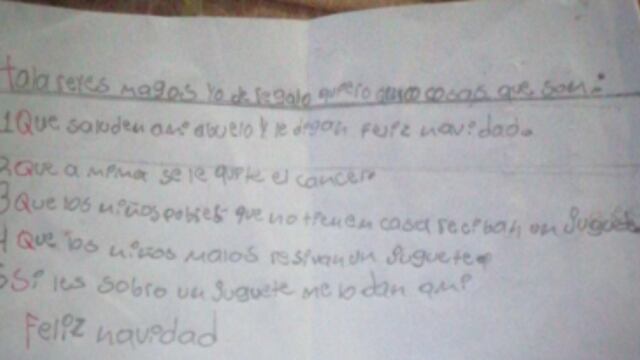 tola reyes magos Yo de regalo quiero cinco cosas que son:
1 Que saluden a mi abuelo y le digan Feliz navidad.
2 Que a mi se le quite el cancer.
3 Que los niños pobres que no tienen casa reciban un Juguete
4 Que los niños malos resivan un Juguete.
5 Si les sobro un Juguete me lo dan a mi
Feliz navidad